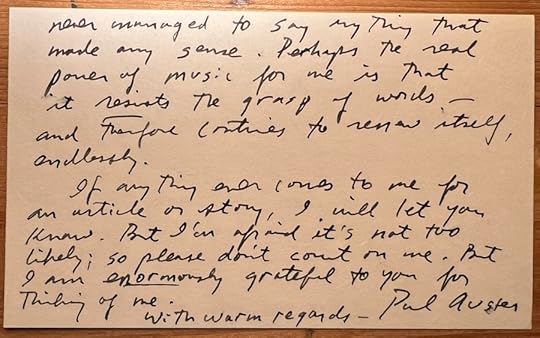 never managed to say anything that
made any sense. Perhaps the real
power of music for me is that
it resists the grasp of words —
and therefore continues to renew itself,
endlessly.
If anything ever comes to me for
an article or story, I will let you
know. But I'm afraid it's not too
likely; so please don't count on me. But
I am enormously grateful to you for
thinking of me.
With warm regards — Paul Auster